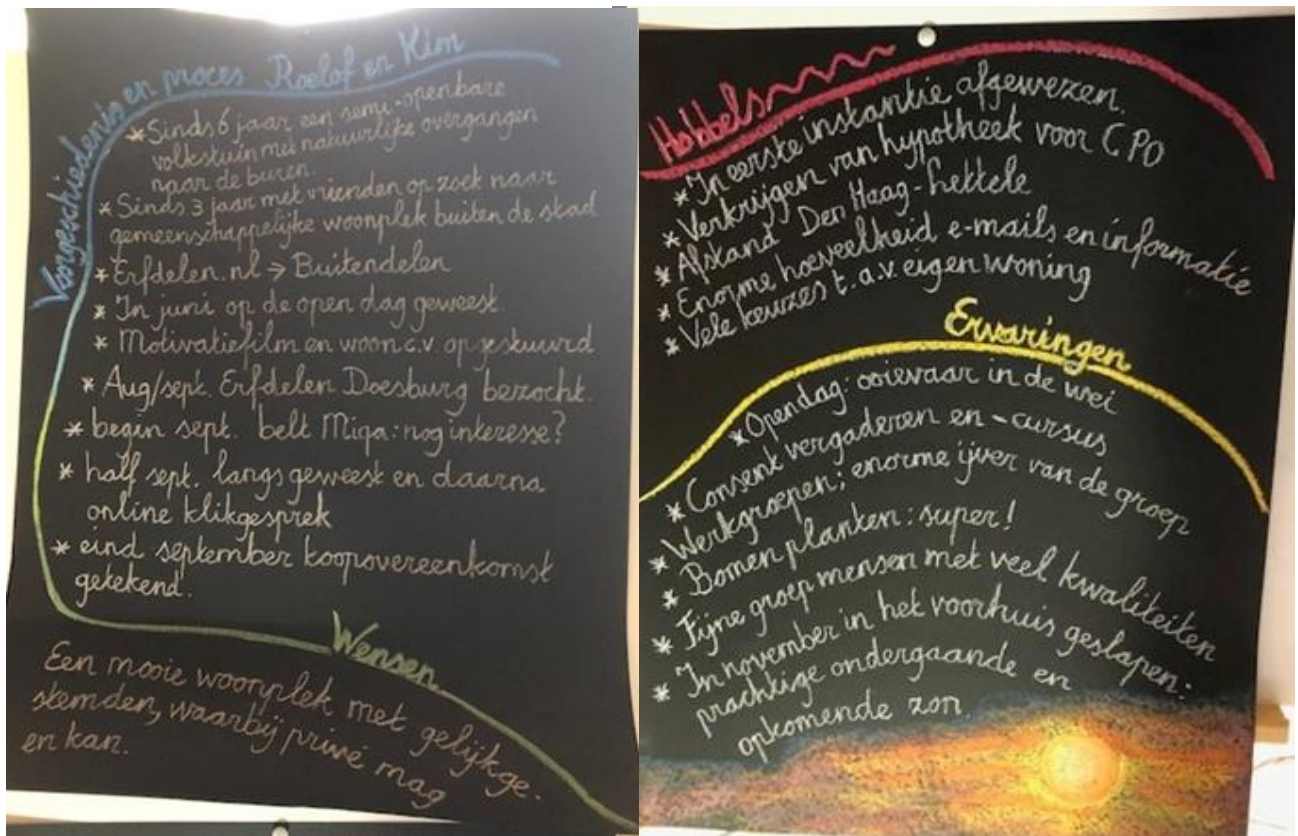 Voorgeschiedenis en proces Roelof en Kim
* Sinds 6 jaar een semi-openbare
volkstuin met natuurlijke overgangen
naar de buren.
* Sinds 3 jaar met vrienden op zoek naar
gemeenschappelijke woonplek buiten de stad
* Erfdelen.nl → Buitendelen
* In juni op de open dag geweest.
* Motivatiefilm en woon c.v. opgestuurd
* Aug/sept. Erfdelen Doesburg bezocht.
* begin sept. belt Miqa: nog interesse?
* half sept. langs geweest en daarna
online klikgesprek
* eind september koopovereenkomst
getekend.
Wensen
Een mooie woonplek met gelijkge-
stemden, waarbij privé mag
en kan.
Hobbels
* In eerste instantie afgewezen.
* Verkrijgen van hypotheek voor CPO
* Afstand Den Haag-Lettele
* Enorme hoeveelheid e-mails en informatie
* Vele keuzes t.a.v. eigen woning
Ervaringen
* Opendag: ooievaar in de wei
* Consent vergaderen en -cursus
* Werkgroepen; enorme ijver van de groep
* Bomen planten: super!
* Fijne groep mensen met veel kwaliteiten
* In november in het voorhuis geslapen:
prachtige ondergaande en
opkomende zon.